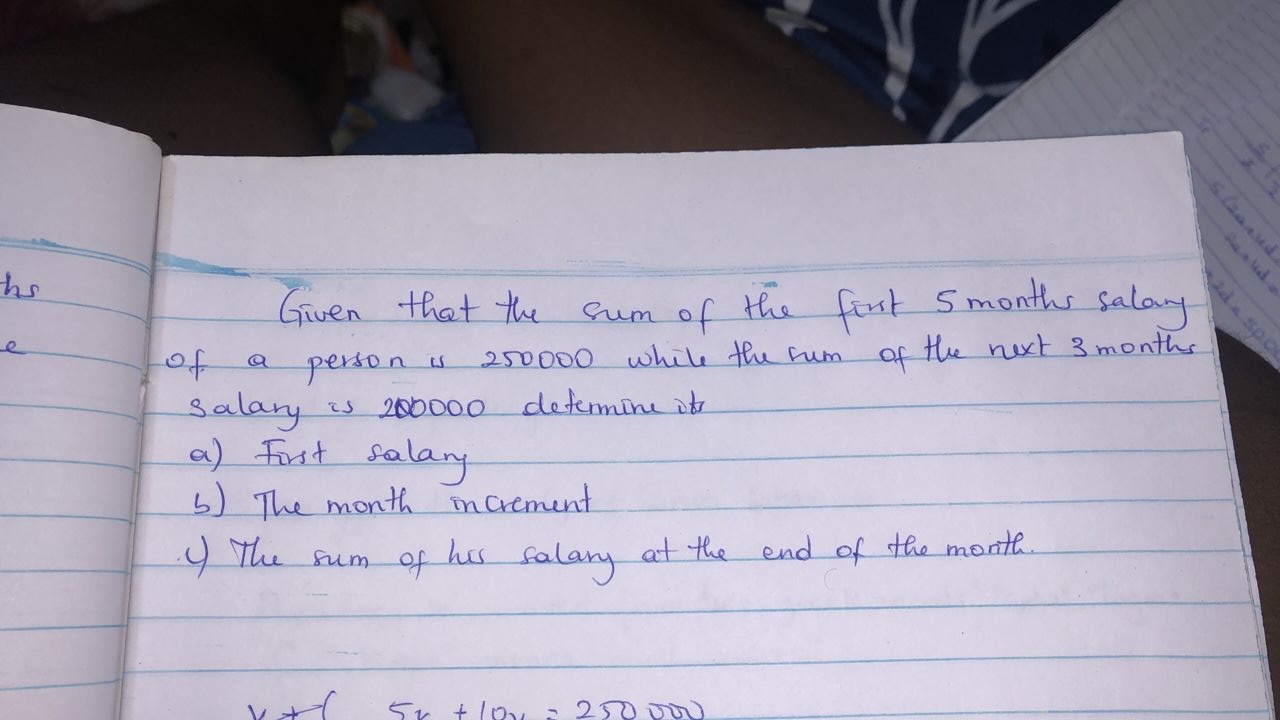 hs
e
Given that the sum of the first 5 months salary
of a person is 250000 while the sum of the next 3 months
salary is 200000 determine its
a) First salary
b) The month increment
c) The sum of his salary at the end of the month.
250 000